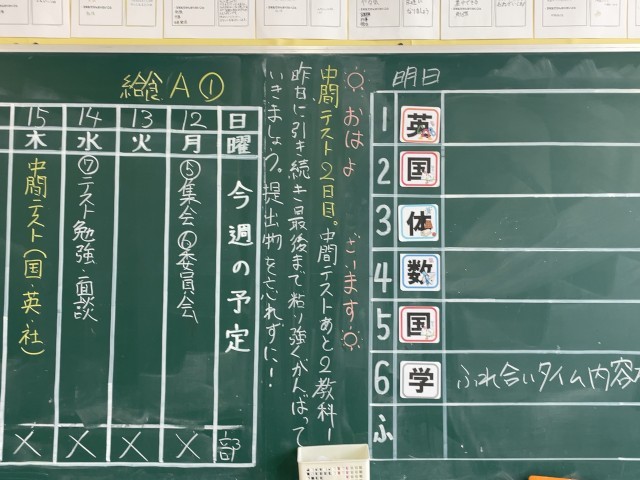 明日
1 英
2 国
3 体
4 数
5 国
6 学 ふれ合いタイム内容
ふ
おはよ ございます
中間テスト2日目。中間テストあと2教科!
昨日に引き続き最後まで粘り強くがんばって
いきましょう。提出物を忘れずに!
給食A①
日 12 13 14 15
曜 月 火 水 木
今週の予定
⑤集会⑥委員会
⑦テスト勉強・面談
中間テスト(国・英・社)
部 × × × ×